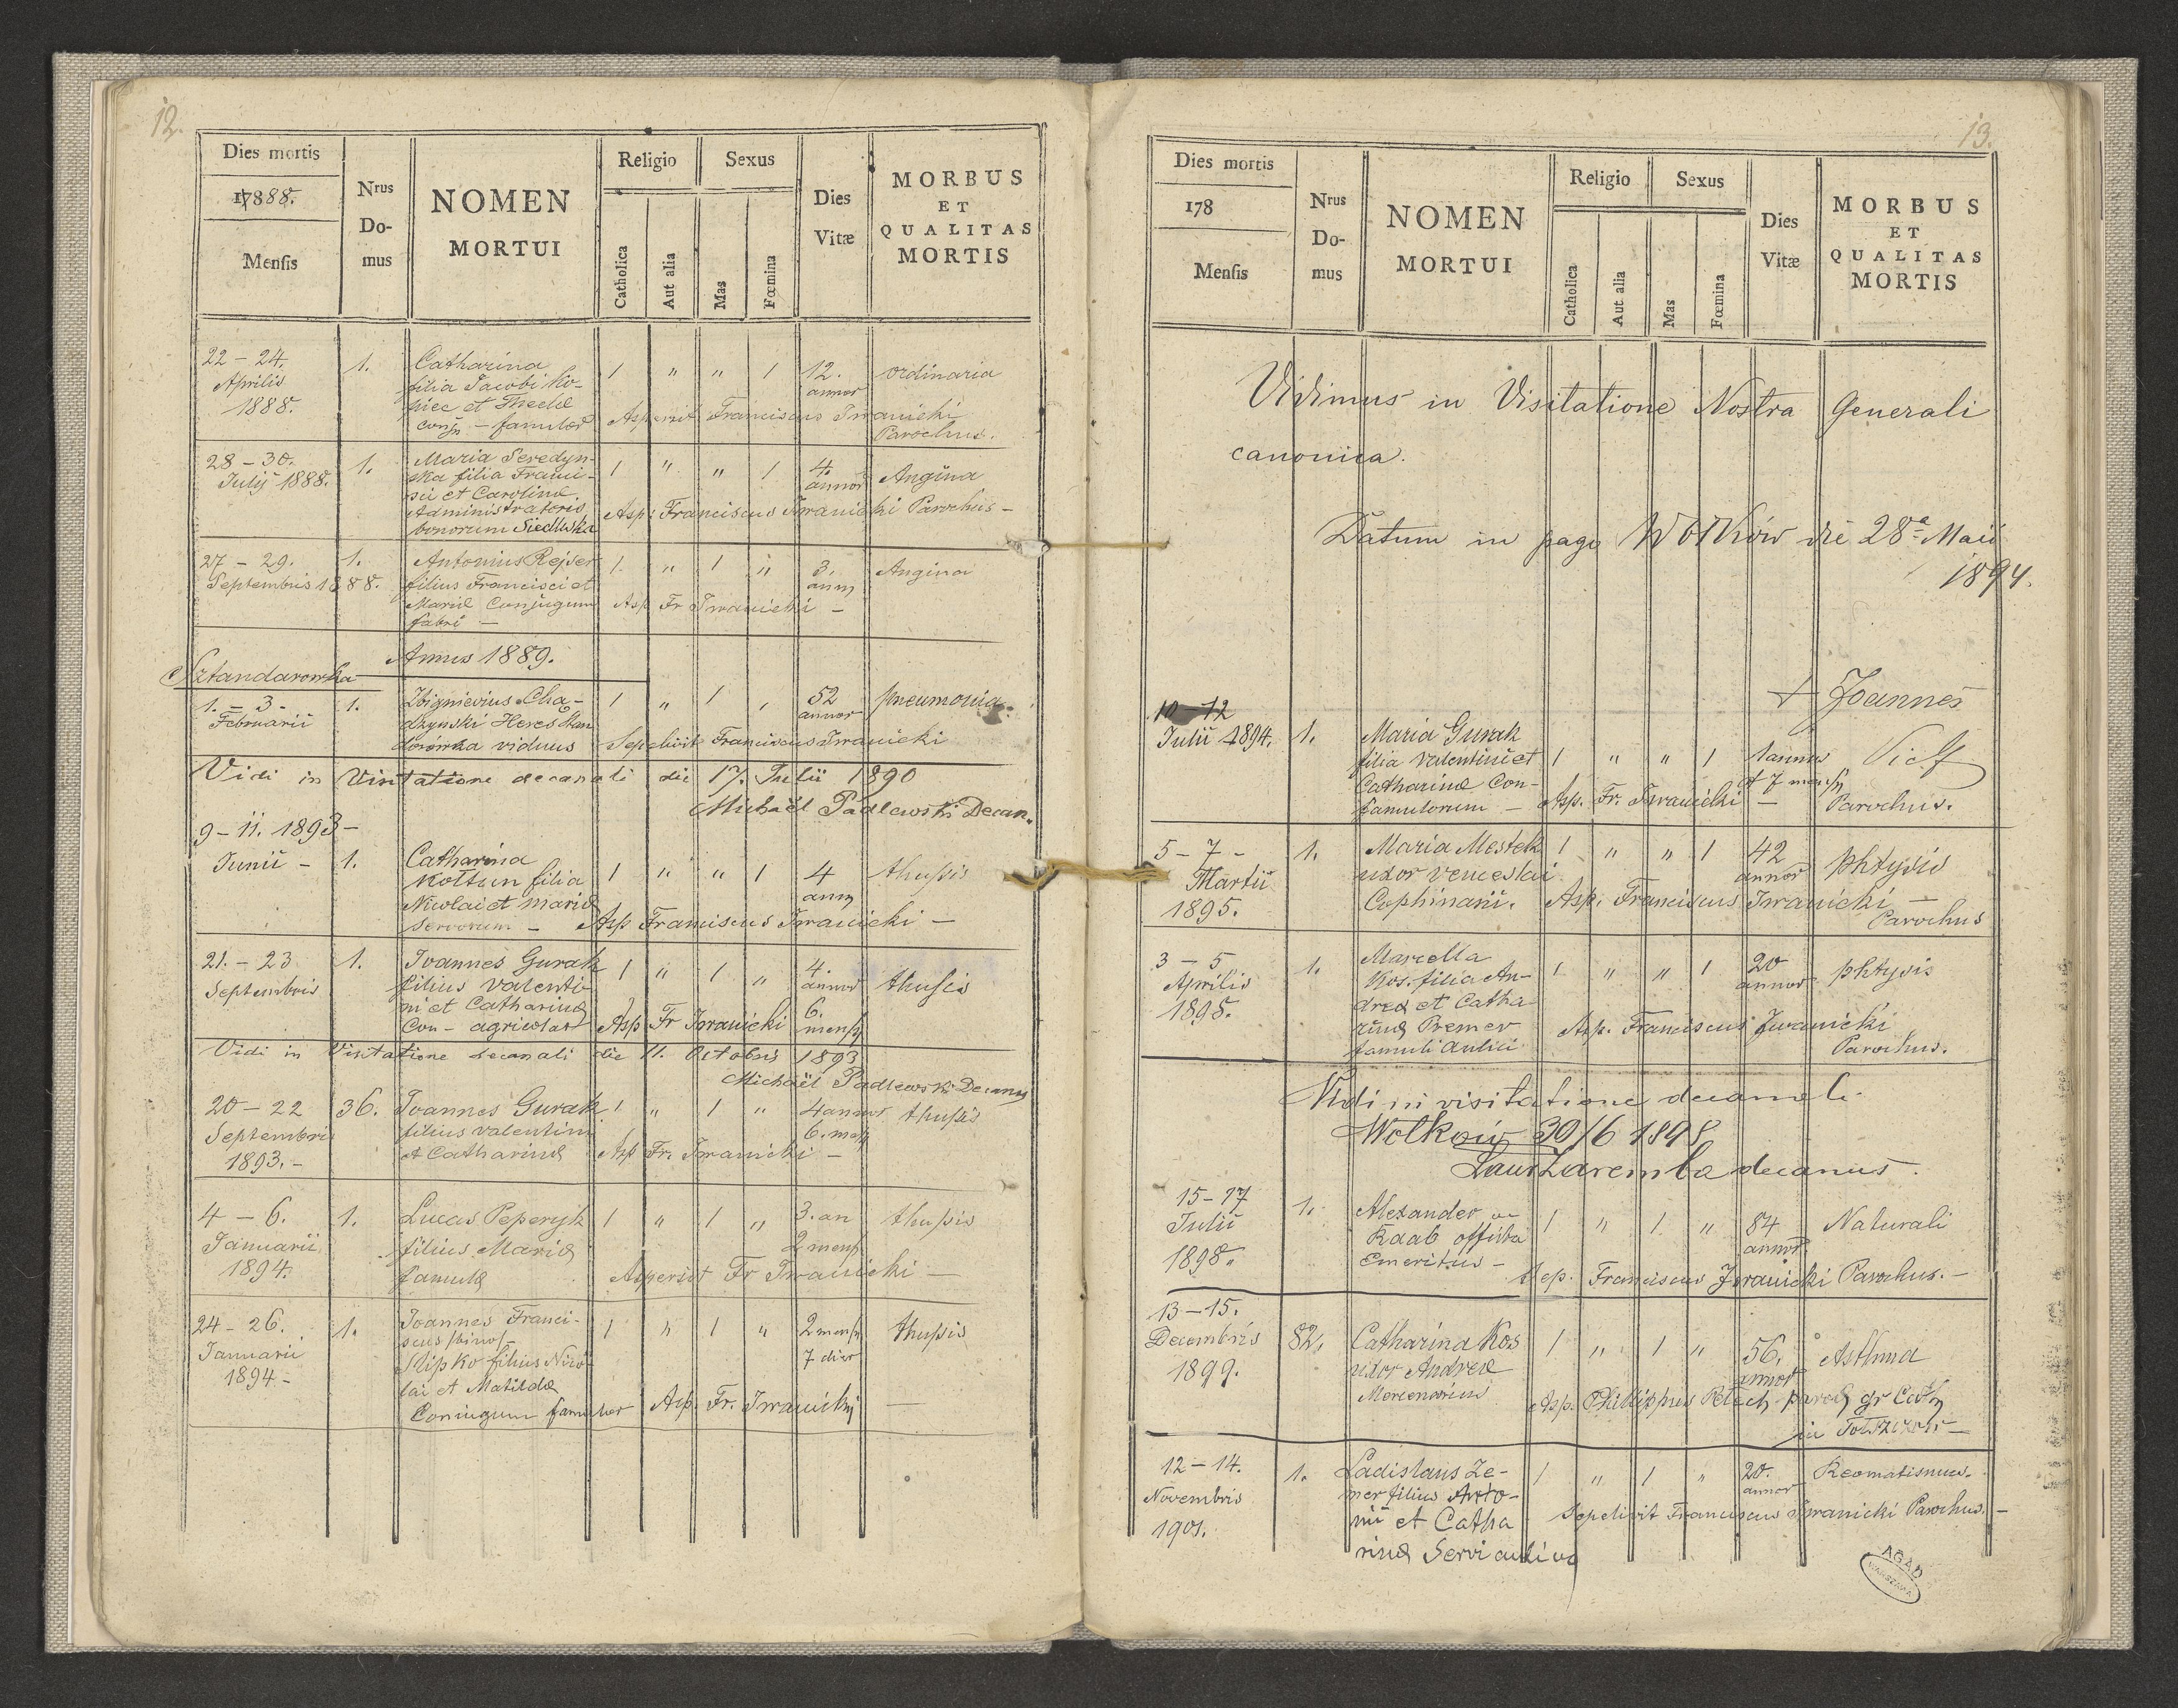 12.
Dies mortis
17888.
Mensis
Nrus
Do-
mus
NOMEN
MORTUI
Religio
Catholica
Aut alia
Sexus
Mas
Fœmina
Dies
Vitæ
MORBUS
ET
QUALITAS
MORTIS
22 – 24.
Aprilis
1888.
1.
Catharina
filia Jacobi Ko-
piec et Theclæ
conj. – famulor
1 " " 1
12.
annor
ordinaria
Aspersit Franciscus Iwanicki
Parochus.
28 – 30.
Julij 1888.
1.
Maria Seredyn-
ska filia Franci-
sci et Carolinæ.
Administratoris
bonorum Siedliska
1 " " 1
4
annor
Angina
Asp: Franciscus Iwanicki Parochus –
27 – 29.
Septembris 1888.
1.
Antonius Rejser
filius Francisci et
Mariæ Conjugum
fabri –
1. " 1 "
3.
ann
Angina
Asp Fr Iwanicki –
Annus 1889.
Sztandarowka
1. – 3 –
Februarii
1.
Zbignievius Cha-
dzynski Heres Stan
dorówka viduus
1 " 1 ,
52
annor
pneumonia.
Sepelivit Franciscus Iwanicki
Vidi in Visitatione decanali die 17. Julii 1890
Michaël Padlewski Decan.
9 – 11. 1893 –
Junii –
1.
Catharina
Kołtun filia
Nicolai et Mariæ
Servorum –
1 " " 1
4
ann
thussis
Asp Franciscus Iwanicki –
21. – 23
Septembris
1.
Joannes Gurak
filius Valenti-
ni et Catharinæ
Con – agricolar
1 " 1 "
4.
annor
6.
mens
thussis
Asp Fr Iwanicki
Vidi in Visitatione decanali die 11. Octobris 1893
Michaël Padlewski Decanus
20 – 22
Septembris
1893. –
36.
Joannes Gurak
filius Valentini
et Catharinæ
1 " 1 "
4 annor
6. mens
thussis
Asp Fr. Iwanicki –
4 – 6.
Januarii
1894.
1.
Lucas Peperyk
filius Mariæ
famulæ
1 " 1 "
3. an
2 mens
thussis
Aspersit Fr Iwanicki –
24 – 26.
Januarii
1894 –
1.
Joannes Franci-
scus /bino/
Slipko filius Nico-
lai et Matildæ
Coniugum famulor
1 " 1 "
2 mens
7 dier
thussis
Asp. Fr. Iwanicki –
13.
Dies mortis
178
Mensis
Nrus
Do-
mus
NOMEN
MORTUI
Religio
Catholica
Aut alia
Sexus
Mas
Fœmina
Dies
Vitæ
MORBUS
ET
QUALITAS
MORTIS
Vidimus in Visitatione Nostra Generali
canonica.
Datum in pago Wołków die 28ª Maii
1894.
+ Joannes
10 – 12
Julii 1894.
1.
Maria Gurak
filia Valentini et
Catharinæ Con-
famulorum –
1 " " 1
1 annus
et 7 mens
Asp. Fr. Iwanicki –
Parochus.
5 – 7 –
Martii
1895.
1.
Maria Mestek
uxor Venceslai
Cophinarii.
1 " " 1
42
annor
phtysis
Asp. Franciscus Iwanicki –
Parochus
3 – 5
Aprilis
1898.
1.
Marcella
Kos. filia An-
dreæ et Catha
rinæ Premer
famuli aulici
1 " " 1
20
annor
phtysis
Asp. Franciscus Iwanicki
Parochus.
Vidi in visitatione decanali
Wołków 30/6 1898
Laur Zaremba decanus.
15 – 17
Julii
1898.
1.
Alexander
Raab
Emeritus –
1 " 1 "
84
annor
Naturali
Sep. Franciscus Iwanicki Parochus. –
13 – 15.
Decembris
1899.
82.
Catharina Kos
uxor Andreæ
Mercenarius
1 " 1 "
56.
annor
Asthma
Asp. Phillippus paroch gr Cath
in
12 – 14.
Novembris
1901.
1.
Ladislaus Ze-
mer filius Anto-
nii et Catha
rinæ Servi aulici
1 " 1 "
20.
annor
Reomatismus.
Sepelivit Franciscus Iwanicki Parochus. –
AGAD
WARSZAWA